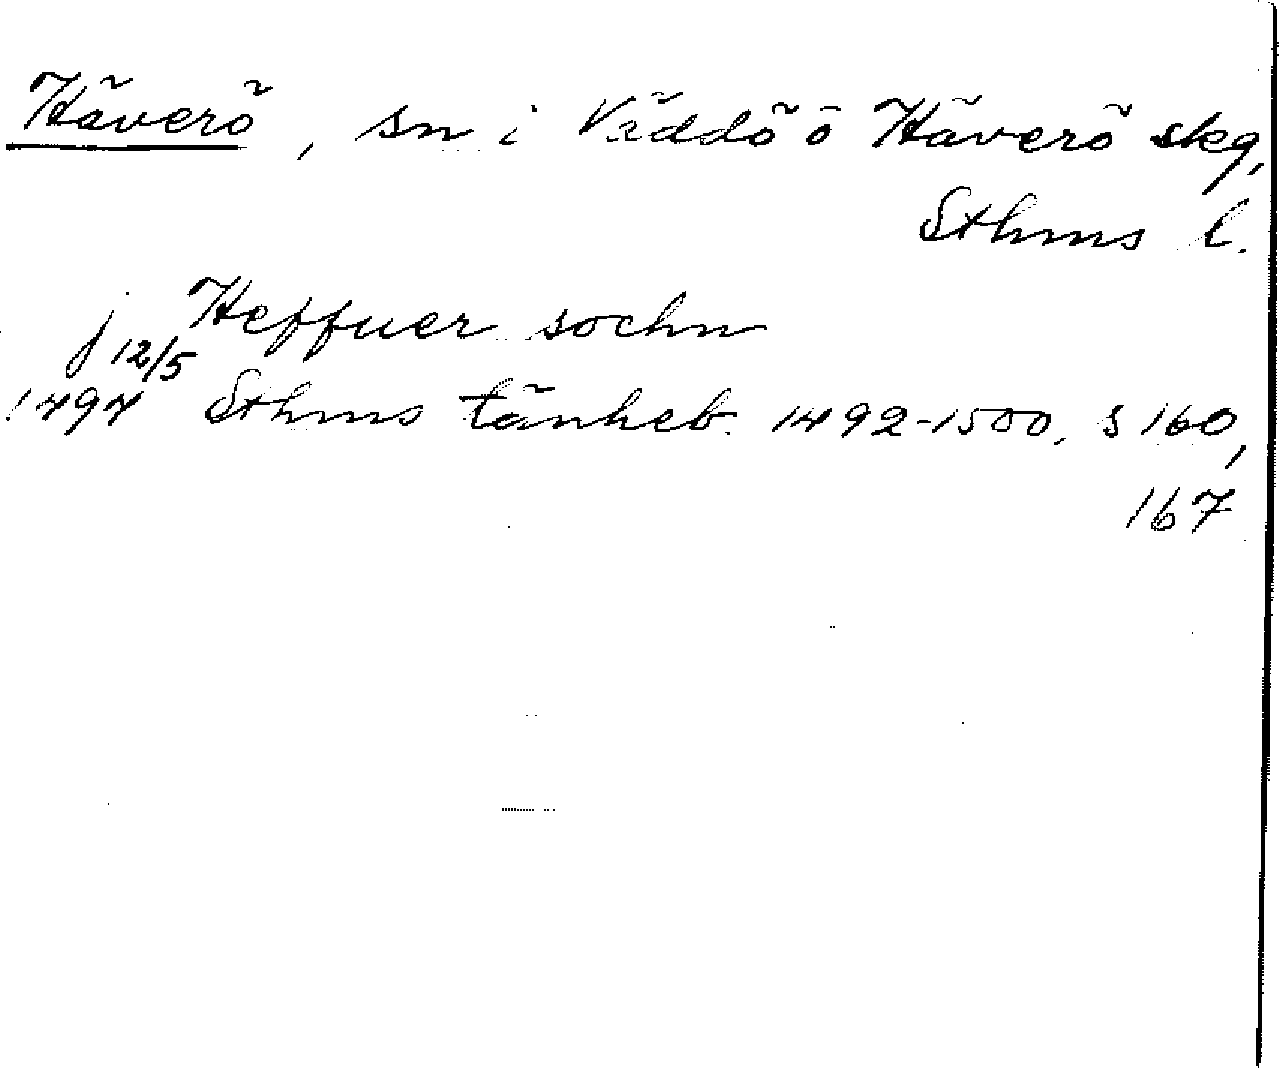 Häverö, sn i Väddö o Häverö skg,
Sthms l.
j Heffuer sochn
12/5
1494 Sthms tänkeb. 1492-1500, s 160,
167